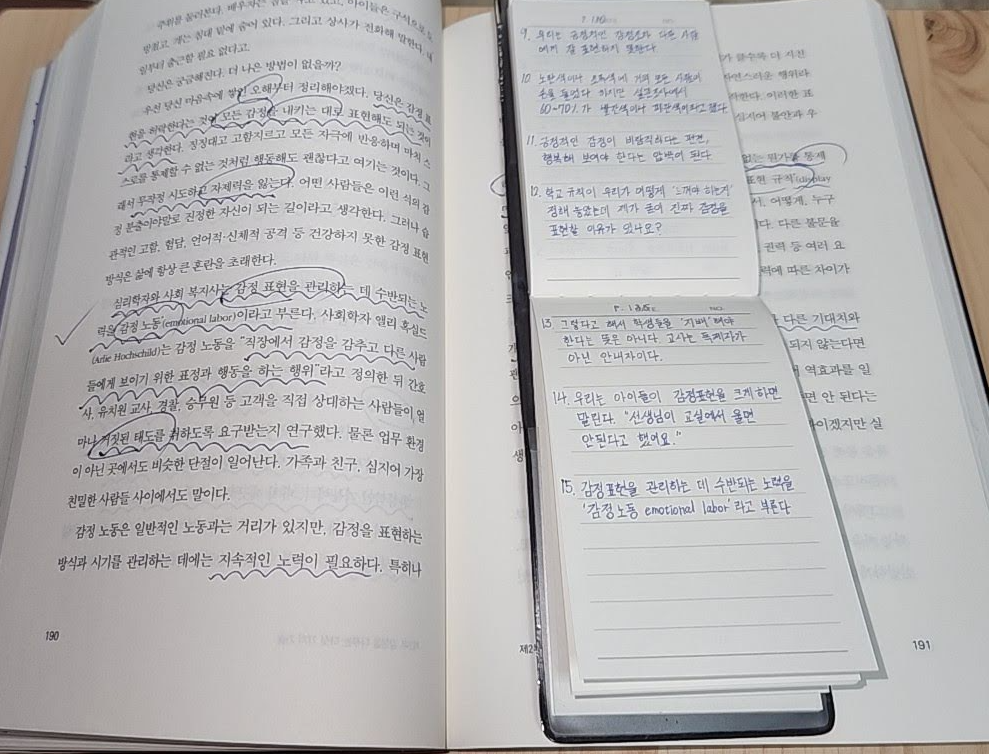 주위를 둘러본다. 배우자는
방점고, 개는 침대 밑에 숨어 있다. 그리고 상사가 전화해 말한다. 내
일부터 출근할 필요 없다고.
당신은 궁금해진다. 더 나은 방법이 없을까?
우선 당신 마음속에 쌓인 오해부터 정리해야겠다. 당신은 감정 표
현을 허락한다는 것이 모든 감정을 내키는 대로 표현해도 되는 것이
라고 생각한다. 징징대고 고함지르고 모든 자극에 반응하며 마치 스
스로를 통제할 수 없는 것처럼 행동해도 괜찮다고 여기는 것이다. 그
래서 무작정 시도하고 자제력을 잃는다. 어떤 사람들은 이런 식의 감
정 분출이야말로 진정한 자신이 되는 길이라고 생각한다. 그러나 습
관적인 고함, 험담, 언어적·신체적 공격 등 건강하지 못한 감정 표현
방식은 삶에 항상 큰 혼란을 초래한다.
심리학자와 사회 복지사는 감정 표현을 관리하는 데 수반되는 노
력을 '감정 노동'(emotional labor)이라고 부른다. 사회학자 앨리 혹실드
(Arlie Hochschild)는 감정 노동을 "직장에서 감정을 감추고 다른 사람
들에게 보이기 위한 표정과 행동을 하는 행위"라고 정의한 뒤 간호
사, 유치원 교사, 경찰, 승무원 등 고객을 직접 상대하는 사람들이 얼
마나 거짓된 태도를 취하도록 요구받는지 연구했다. 물론 업무 환경
이 아닌 곳에서도 비슷한 단절이 일어난다. 가족과 친구, 심지어 가장
친밀한 사람들 사이에서도 말이다.
감정 노동은 일반적인 노동과는 거리가 있지만, 감정을 표현하는
방식과 시기를 관리하는 데에는 지속적인 노력이 필요하다. 특히나
190
9. 우리는 긍정적인 감정조차 다른 사람
에게 잘 표현하지 못한다
10. 노란색이나 초록색에 거의 모든 사람이
손을 들었다 하지만 설문조사에서
60~70%가 빨간색이나 파란색이라고 했다
11. 긍정적인 감정이 바람직하다는 편견,
행복해 보여야 한다는 압박이 된다
12. 학교 규칙이 우리가 어떻게 '느껴야 하는지'
정해 놓았는데 제가 굳이 진짜 감정을
표현할 이유가 있나요?
13. 그렇다고 해서 학생들을 '지배'해야
한다는 뜻은 아니다. 교사는 독재자가
아닌 안내자이다.
14. 우리는 아이들이 감정표현을 크게 하면
말린다. "선생님이 교실에서 울면
안된다고 했어요."
15. 감정표현을 관리하는 데 수반되는 노력을
'감정노동 emotional labor'라고 부른다
가 클수록 더 지전
자연스러운 행위라
각한다. 이러한 표
심지어 불안과 우
없는 뭔가를 통제
표현 규칙'(display
서, 어떻게, 누구
다. 다른 불문율
권력 등 여러 요
력에 따른 차이가
다른 기대치와
되지 않는다면
역효과를 일
면 안 된다는
이겠지만 실
191